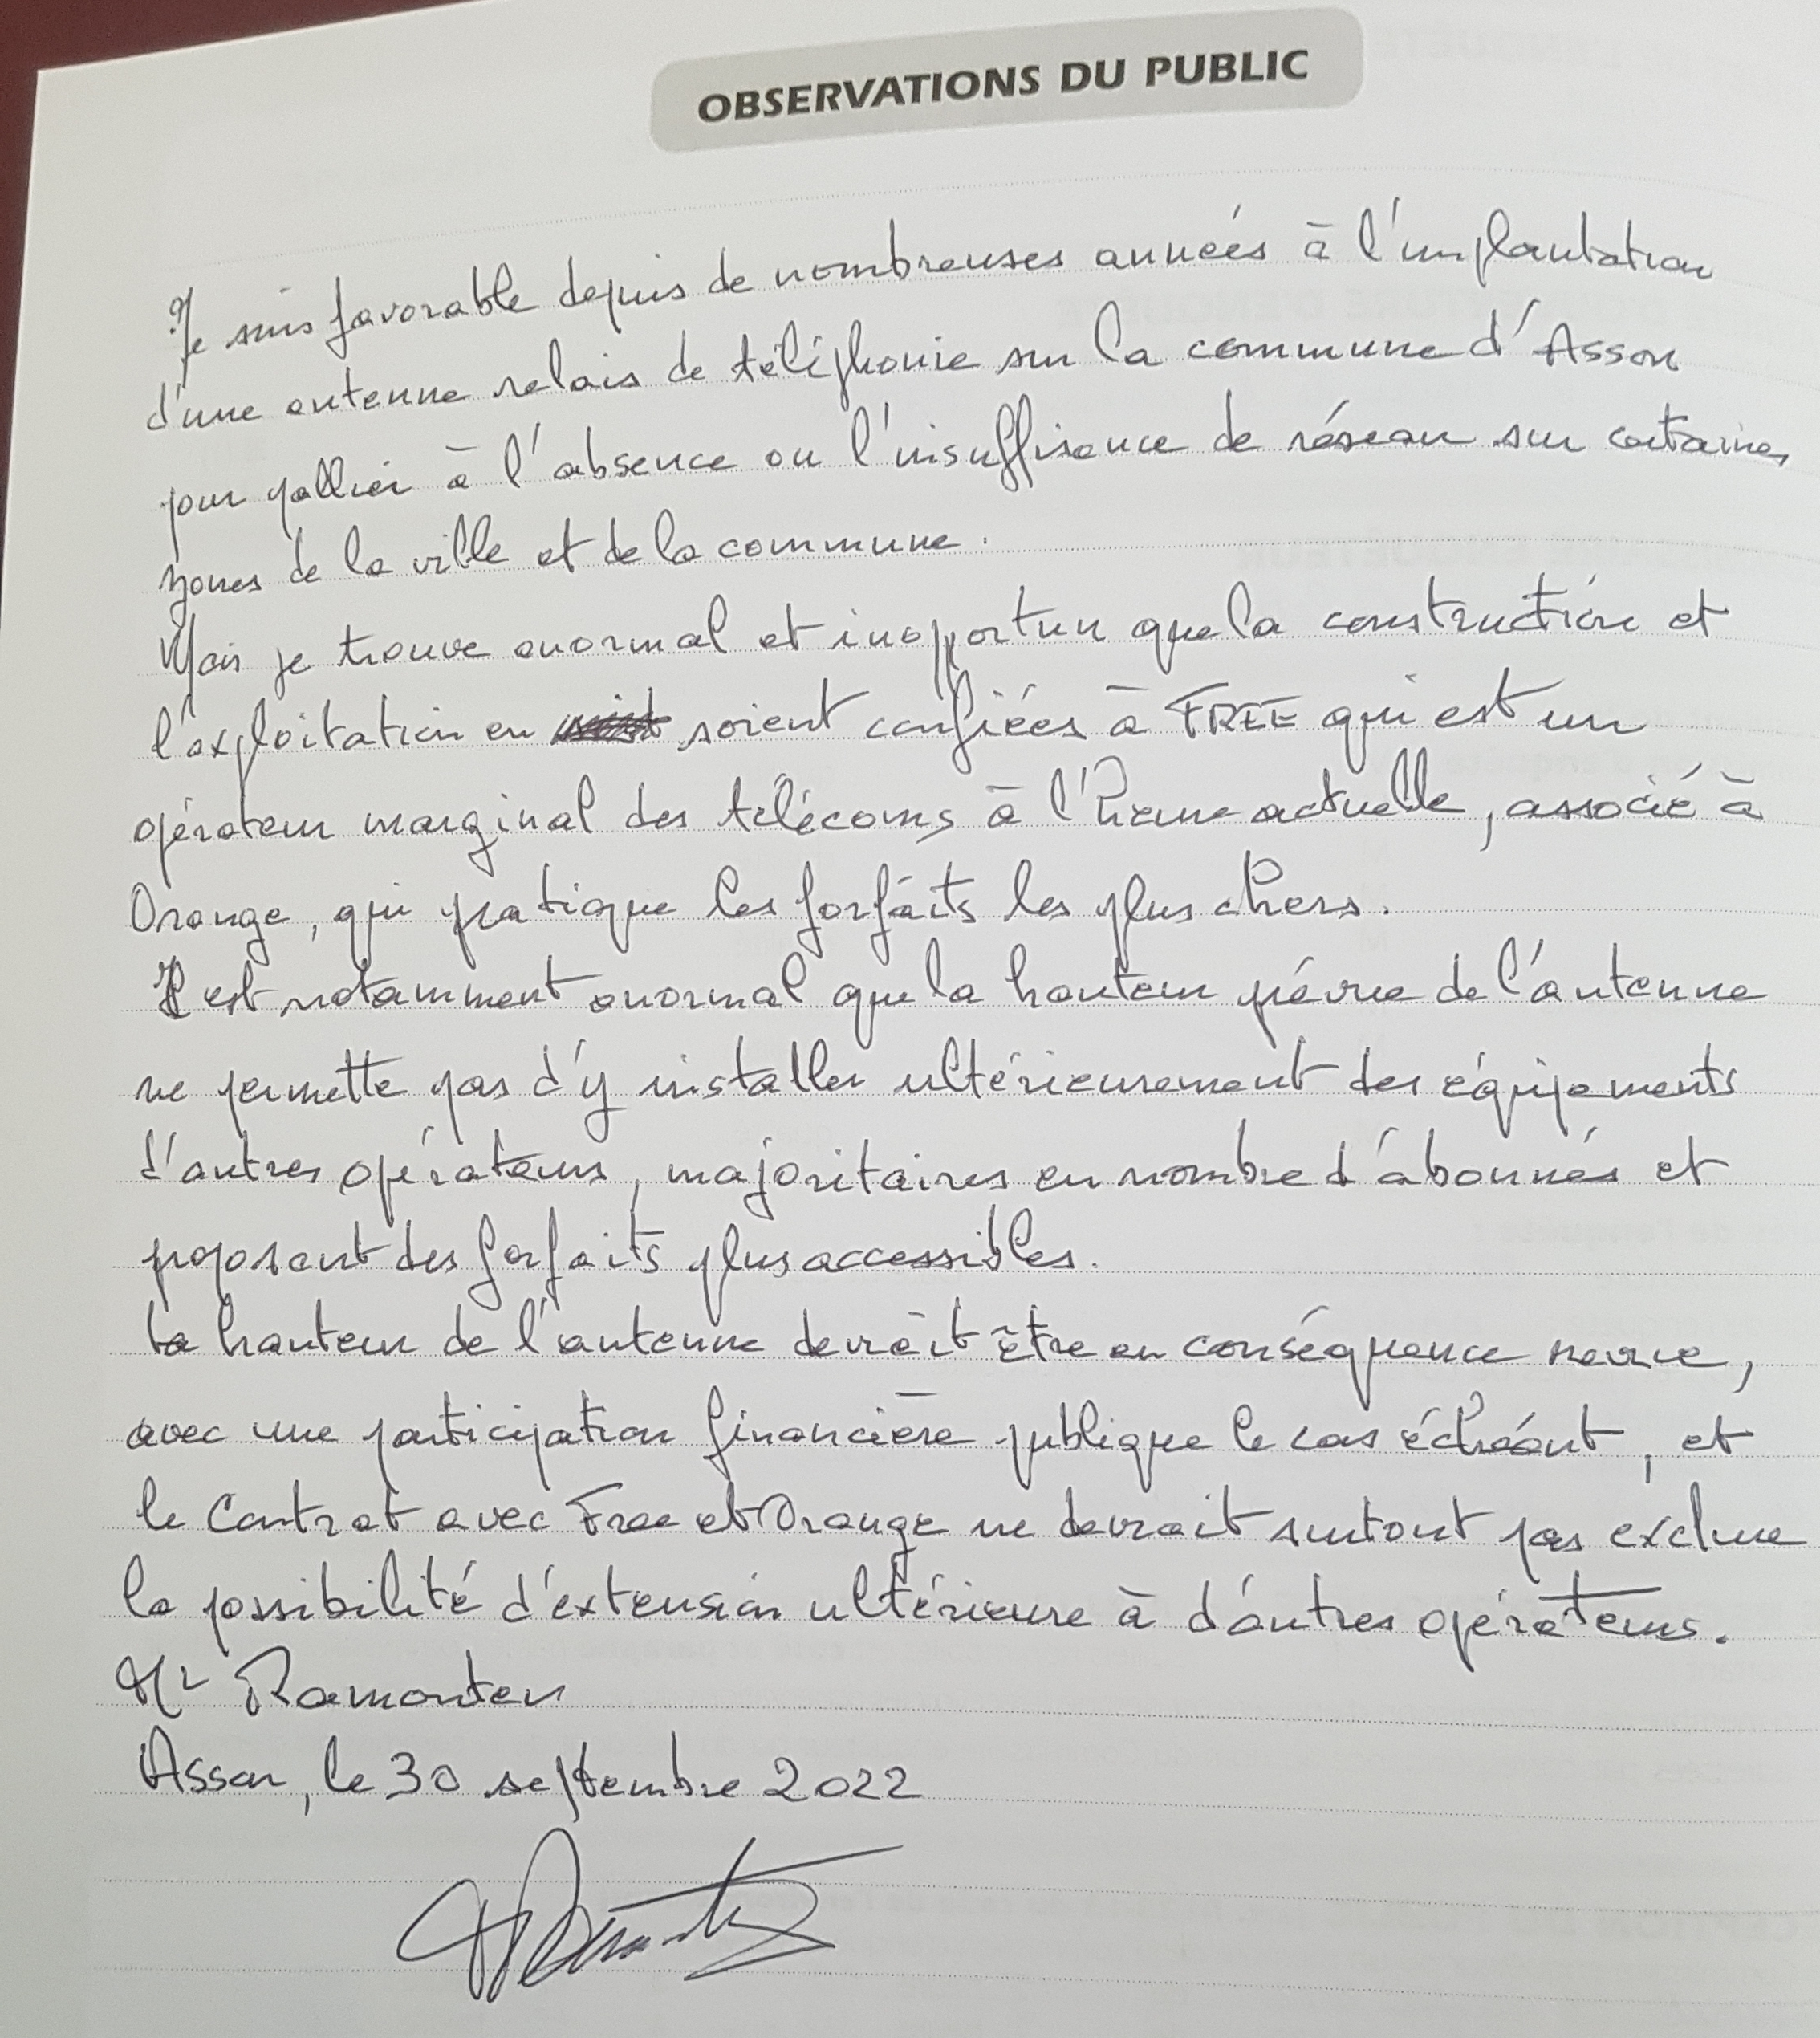 OBSERVATIONS DU PUBLIC
Je suis favorable depuis de nombreuses années à l'implantation
d'une antenne relais de téléphonie sur la commune d'Asson
pour pallier à l'absence ou l'insuffisance de réseau sur certaines
zones de la ville et de la commune.
Mais je trouve anormal et inopportun que la construction et
l'exploitation en soient confiées à FREE qui est un
opérateur marginal des télécoms à l'heure actuelle, associé à
Orange, qui pratique les forfaits les plus chers.
Il est notamment anormal que la hauteur prévue de l'antenne
ne permette pas d'y installer ultérieurement des équipements
d'autres opérateurs, majoritaires en nombre d'abonnés et
proposant des forfaits plus accessibles.
La hauteur de l'antenne devrait être en conséquence revue,
avec une participation financière publique le cas échéant, et
le contrat avec Free et Orange ne devrait surtout pas exclure
la possibilité d'extension ultérieure à d'autres opérateurs.
Mr
Asson, le 30 septembre 2022